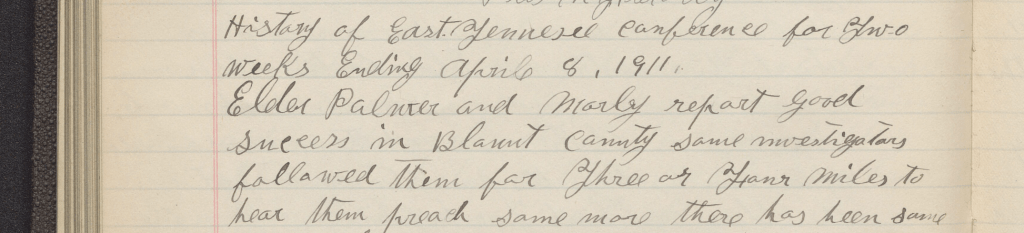 History of East Tennesee Conference for Two
weeks Ending April 8, 1911.
Elder Palmer and Marly report good
success in Blount County some investigators
followed them for Three or Four miles to
hear them preach some more there has been some